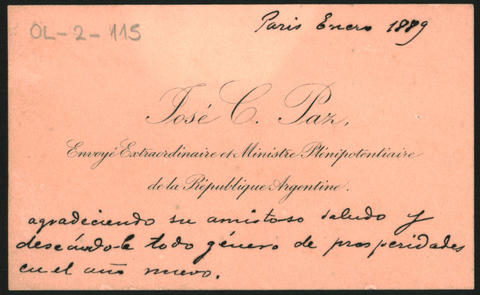 OL-2-115
Paris Enero 1889
José C. Paz,
Envoyé Extraordinaire et Ministre Plénipotentiaire
de la République Argentine.
agradeciendo su amistoso saludo y
deseándole todo género de prosperidades
en el año nuevo.